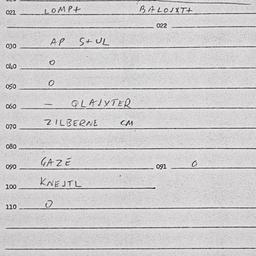 021 LOMP+ BALOJXT+
022
030 AP S+UL
040 O
050 O
060 - GLAJYTER
070 ZILBERNE CM
080
090 GAZE 091 O
100 KNEJTL
110 O